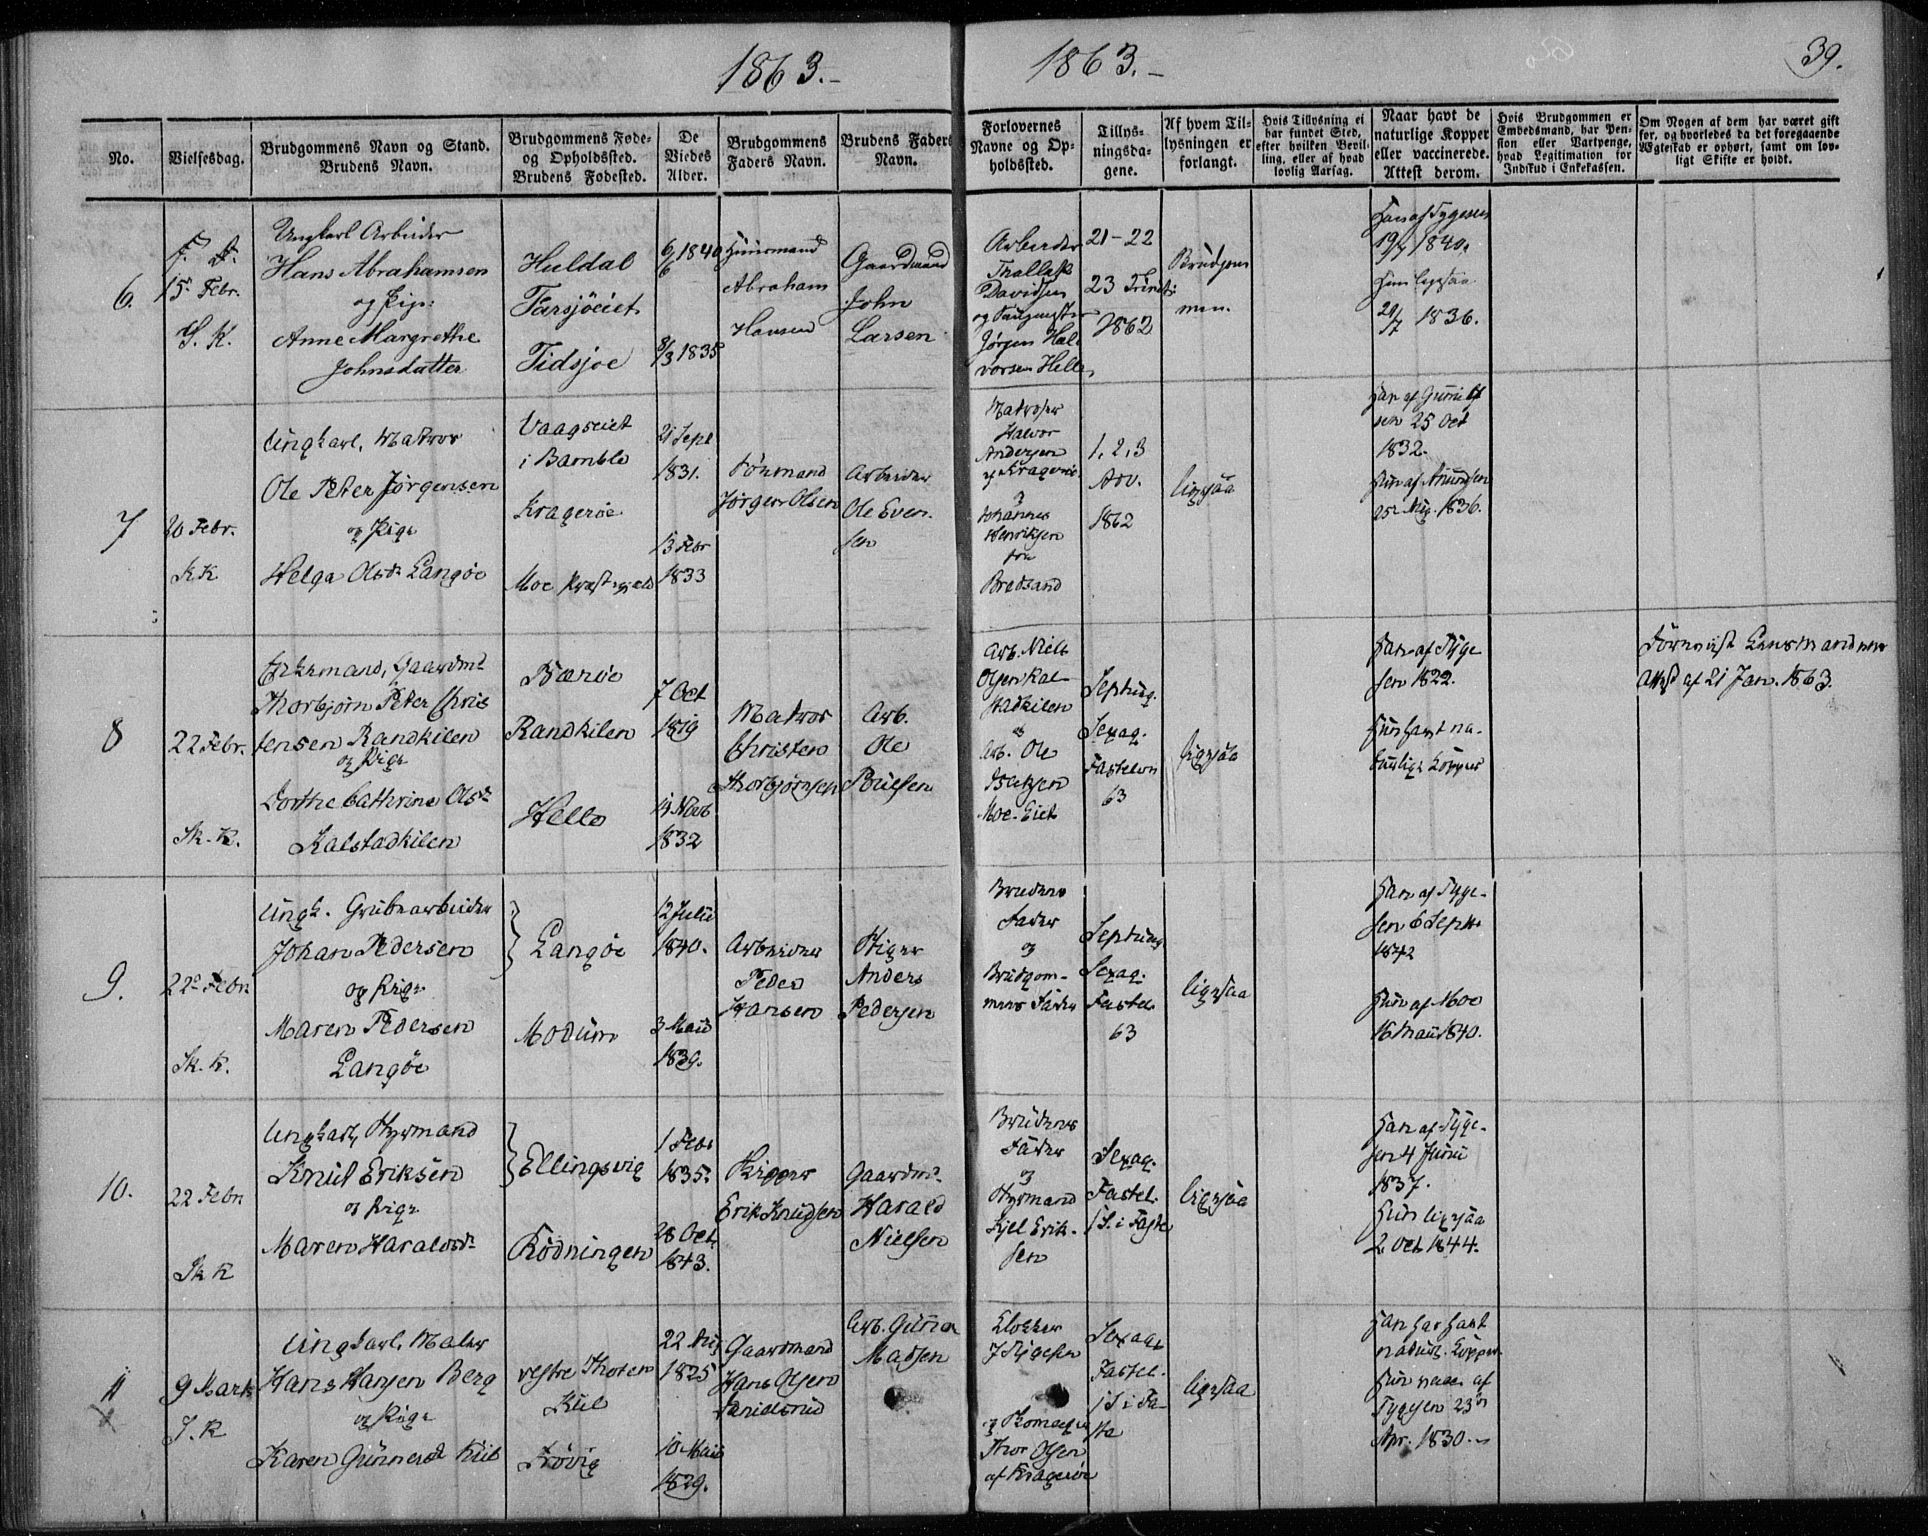 1863.-
1863.-
39.
No.
Vielsesdag.
Brudgommens Navn og Stand.
Brudens Navn.
Brudgommens Føde-
og Opholdssted.
Brudens Fødested.
De
Viedes
Alder.
Brudgommens
Faders Navn.
Brudens Faders
Navn.
Forlovernes
Navne og Op-
holdssted.
Tillys-
ningsda-
gene.
Af hvem Til-
lysningen er
forlangt.
Hvis Tillysning ei
har fundet Sted,
efter hvilken Bevil-
ling, eller af hvad
lovlig Aarsag.
Naar havt de
naturlige Kopper
eller vaccinerede.
Attest derom.
Hvis Brudgommen er
Embedsmand, har Pen-
sion eller Vartpenge,
hvad Legitimation for
Indskud i Enkekassen.
Om Nogen af dem har været gift
før, og hvorledes da det foregaaende
Ægteskab er ophørt, samt om lov-
ligt Skifte er holdt.
6.
15 Febr.
S. K.
Ungkarl Arbeider
Hans Abrahamsen
og Pige
Anne Margrethe
Johnsdatter
Huldal
Farsjøeiet
Tidsjøe
6/6 1840
8/3 1835
Huusmand
Abraham
Hansen
Gaardmand
John
Larsen
Arbeider
Davidsen
Jørgen Hal-
vorsen Helle
21-22
23 Trinit:
1862
Brudgom
men.
Han af Tygesen
19/7 1840.
Hun ligesaa
21/7 1836.
7
20 Febr.
KK
Ungkarl, Matros
Ole Peter Jørgensen
og Pige
Helga Olsdr Langøe
Vaagseiet
i Bamble
Kragerøe
Moe Præstegjeld
21 Sept
1831.
13 Febr
1833
Jørgen Olsen
Arbeider
Ole Even-
sen
Matroser
Halvor
Andersen
af Kragerøe
og
Johannes
Henriksen
fra
Bredsand
1, 2, 3
Adv.
1862
ligesaa
Han af Gunulf
sen 25 Oct
1832.
Hun af Amundsen
25 Aug. 1836.
8
22 Febr.
Sk. K.
Enkemand, Gaardmd
Thorbjørn Peter Chris
tensen Randkilen
og Pige
Dorthe Cathrine Olsdr
Kalstadkilen
Bærøe
Randkilen
Helle
7 Oct
1819
14 Novb
1832
Matros
Christen
Thorbjørnsen
Arb.
Ole
Poulsen
Arb. Niels
Olsen Kal-
stadkilen
Arb. Ole
Isaksen
Moe-Eiet
Septuag.
Sexag.
Fastelavn
63
ligesaa
Han af Tyge
sen 1822.
Hun havt na-
turlige Kopper
Lensmandens
Attest af 21 Jan. 1863.
9.
22 Febr
Sk. K.
Ungk. Grubearbeider
Johan Pedersen
og Pige
Maren Pedersen
Langøe
Langøe
Modum
12 Julii
1840.
3 Maii
1839.
Arbeider
Peder
Hansen
Stiger
Anders
Pedersen
Brudens
Fader
og
Brudgom-
mens Fader
Septuag
Sexag.
Fastel.
63
ligesaa
Han af Tyge-
sen 6 Septb
1842
Hun af Moe
16 Maii 1840.
10.
22 Febr
Sk K
Ungkarl, Styrmand
Knut Eriksen
og Pige
Maren Haraldsdr
Ellingsvig
Rødningen
1 Febr
1835.
28 Oct.
1843.
Skipper
Erik Knudsen
Gaardmd
Harald
Nielsen
Brudens
Fader
og
Styrmand
Kjel Erik-
sen
Sexag.
Fastel.
1 S. i Faste
ligesaa
Han af Tyge-
sen 4 Junii
1837.
Hun ligesaa
2 Oct. 1844.
11
9 Marts
S. K
Ungkarl, Maler
Hans Hansen Berg
og Pige
Karen Gunnersd Kiil
vestre Thoten
Kiil
22 Aug
1825
10 Maii
1829.
Gaardmand
Hans Olsen
Arb. Gunnar
Madsen
Klokker
J Tygesen
Thor Olsen
af Kragerøe
Sexag.
Fastel.
1 S i Fa-
ste
ligesaa
Han har havt
naturl. Kopper
Hun vacc. af
Tygesen 23
Apr. 1830